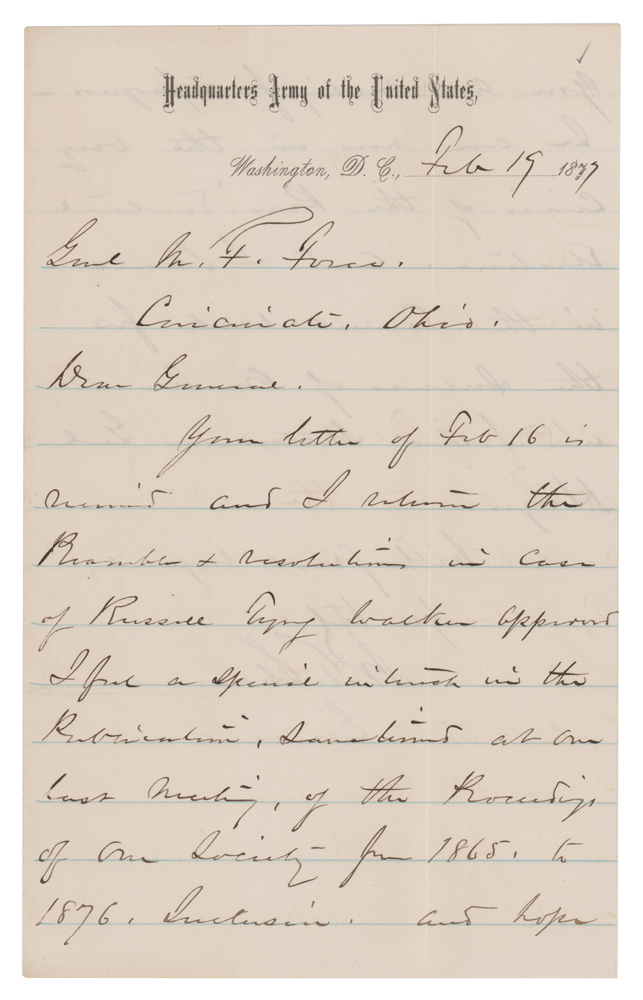 Headquarters Army of the United States,
Washington, D. C., Feb 19 1877
Genl M. F. Force.
Cincinnati, Ohio.
Dear General.
Your letter of Feb 16 is
received and I return the
Preamble & resolutions in case
of Russell Tyng Walker approved
I feel a special interest in the
Publication, sanctioned at our
last Meeting, of the Proceedings
of our Society from 1865. to
1876. Inclusive. and hope